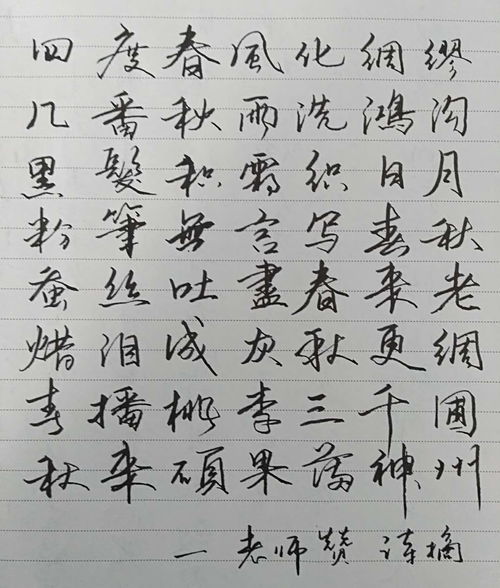 四度春風化綢繆
几番秋雨洗鴻沟
黑髮积霜织日月
粉筆無言写春秋
蚕丝吐盡春来老
烛泪成灰秋更綢
春播桃李三千圃
秋来碩果满神州
一老师赞诗摘